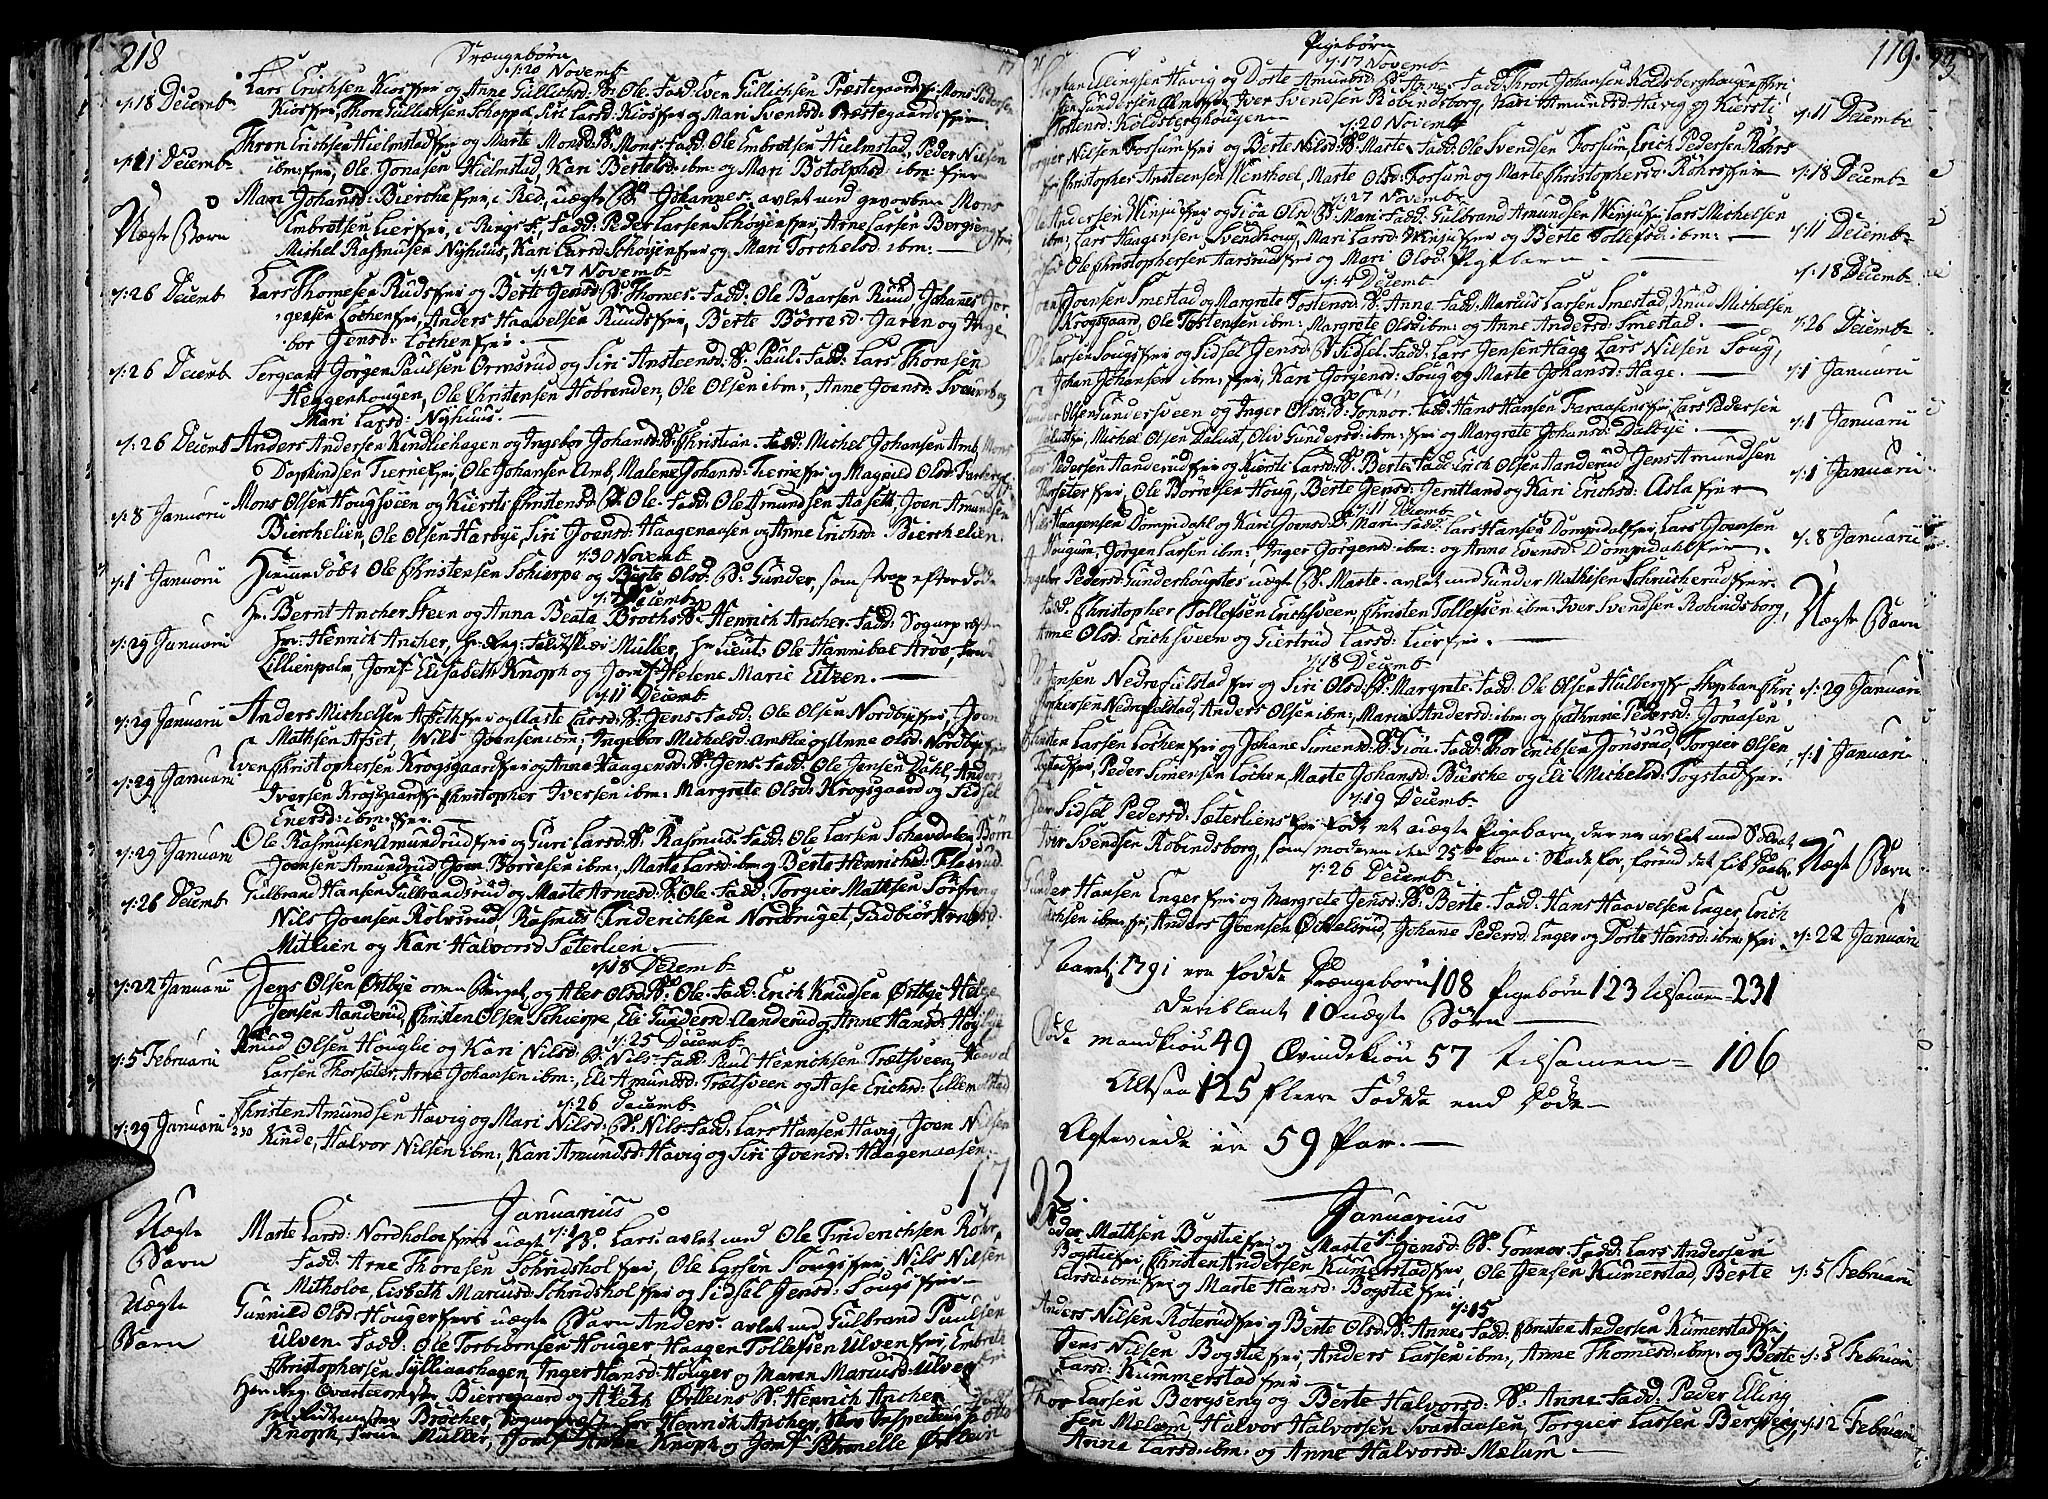 218
Drængebørn
d: 20 Novemb
d: 18 Decemb
Lars Erichsen Kiosfjer og Anne Gullichsd: B: Ole. Fadd: Even Gullichsen Præstegaards f: Mons Pedersen
Kiosfjer, Thore Gullichsen Schoppa, Siri Larsd: Kiosfjer og Mari Svendsd: Præstegaardsfjer
d: 11 Decemb
Thron Erichsen Hielmstadfjer og Marte Monsd: B: Mons. Fadd: Ole Embretsen Hielmstad, Peder Nilsen
ibm: fjer, Ole Jonasen Hielmstad, Kari Bertelsd: ibm: og Mari Botolphsd ibm: fjer
Uægte Barn
Mari Johansd: Bierche fjer, i Red, uægte B: Johannes avlet med gevorben Mons
Embretsen Lier fjer, i Rings F. Fadd: Peder Larsen Schøyen fjer, Arne Larsen Bergseng fjer
Michel Rasmusen Nyhuus, Kari Larsd: Schøyen fjer og Mari Torchelsd: ibm:
d: 27 Novemb
d: 26 Decemb
Lars Thomesen Rudsfjer og Berte Jensd: B: Thomes. Fadd: Ole Baarsen Ruud, Johannes Jør
gensen Løchenfjer, Anders Haavelsen Ruudsfjer, Berte Børresd: Jaren og Inge
bor Jensd: Løchenfjer.
d: 26 Decemb
Sergeant Jørgen Paulsen Ormsrud og Siri Ansteensd: B: Paul. Fadd: Lars Thoresen
Heggenhougen, Ole Christensen Hobrenden, Ole Olsen ibm:, Anne Joensd:
Mari Larsd: Nyhuus.
d: 26 Decemb
Anders Andersen Kindlihagen og Ingebor Johansd: B: Christian. Fadd: Michel Johansen Amb, Mons
Dophindsen Tiernefjer, Ole Johansen Amb, Malene Johansd: Tiernefjer og Magnild Olsd:
d: 8 Januarii
Mons Olsen Hougsveen og Kiersti Christensd: B: Ole. Fadd: Ole Amundsen Aasett, Joen Amundsen
Bierchelien, Ole Olsen Harbye, Siri Joensd: Haagenaasen og Anne Erichsd: Bierchelien.
d: 30 Novemb
d: 1 Januarii
Hiemmedøbt Ole Christensen Schierpe og Berte Olsd: B: Gunder, som strax efter døde
d: 7 Decemb
d: 29 Januarii
Hr Bernt Ancher Steen og Anna Beata Brochs B: Henrich Ancher. Fadd: Sognepræsten
Hr: Henrich Ancher, Hr Reg: Feldtskiær Müller, Hr Lieut: Ole Hannibal Aroe, Frue
Lillienpalm, Jomf: Elisabeth Knoph og Jomf: Helene Marie Eitzen.
d: 11 Decemb
d: 29 Januarii
Anders Michelsen Afsethfjer og Aaste Larsd: B: Jens. Fadd: Ole Olsen Nordbyefjer, Joen
Mathsen Afset, Nils Joensen ibm:, Ingebor Michelsd: Amblie og Anne Olsd: Nordbyefjer
d: 29 Januarii
Even Christophersen Krogsgaardfjer og Anne Haagensd: B: Jens. Fadd: Ole Jensen Dahl, Anders
Iversen Krogsgaardfjer, Christopher Iversen ibm: Margrete Olsd: Krogsgaard og Sidsel
Enersd: ibm: fjer.
d: 29 Januarii
Ole Rasmusen Amundrud og Guri Larsd: B: Rasmus. Fadd: Ole Larsen Schavdalen,
Joensen Amundrud, Joen Borresen ibm:, Marte Larsd: ibm: og Berte Henrichsd:
d: 26 Decemb
Gulbrand Hansen Gulbrandsrud og Marte Arnesd: B: Ole. Fadd: Torgier Mathsen Sørfreng
Nils Joensen Rolvsrud, Rasmus Friderichsen Nordbruget, Gudbiør Arnesd.
Mitlien og Kari Halvorsd: Sæterlien.
d: 18 Decemb
d: 22 Januarii
Jens Olsen Østbye oven Berget, og Ales Olsd: B: Ole. Fadd: Erich Knudsen Østbye, Helge
Jensen Aanderud, Christen Olsen Schierpe, Eli Gundersd: Aanderud og Anne Hansd: Høybye
d: 25 Decemb
d: 5 Februarii
Knud Olsen Houglie og Kari Nilsd: B: Nils. Fadd: Paul Henrichsen Trætsveen, Haavel
Larsen Thorsæter, Arne Johansen ibm:, Eli Amundsd: Trætsveen og Aase Erichsd: Lillemostad
d: 26 Decemb
d: 29 Januarii
Christen Amundsen Hævig og Mari Nilsd: B: Nils. Fadd: Lars Hansen Hævig, Joen Nilsen
Kinde, Halvor Nilsen ibm:, Kari Amundsd: Hævig og Siri Ivensd: Haagenaasen.
17
Januarius
d: 1
Uægte Barn
Marte Larsd: Nordholoe fjers uægte B: Lars. avlet med Ole Friderichsen Rohr,
Fadd: Arne Thoresen Schridshol fjer, Ole Larsen Sougsfjer, Nils Nilsen
Mitholoe, Lisbeth Mariusd: Schridshol fjer og Sidsel Jensd: Sougs fjer
Uægte Barn
Gunnild Olsd Houger fjers uægte Barn Anders. avlet med Gulbrand Paulsen
Ulven. Fadd: Ole Torbiørnsen Houger, Haagen Tollefsen Ulvenfjer, Embret
Christophersen Sylliaashagen, Inger Hansd: Houger og Maren Mariusd: Ulven fjer
d: 7
Herr Reg: Qvarteermester Bierregaard og Aleth Ørbleins B: Henrich Ancher. Fadd:
Hr Ridtmester Bröcher, Sognepræsten Hr Henrich Ancher, Skov Inspecteur Otto
Knoph, Frue Müller, Jomf: Anna Knoph og Jomf: Petronelle Ørblein
119.
Pigebørn
d: 17 Novemb
Stephan Ellingsen Hævig og Dorte Amundsd: B: Anne. Fadd: Thron Johansen Koldsberghougen, Chri
sten Gundersen Almsfjer, Iver Svendsen Robindsborg, Kari Amundsd: Hævig og Kiersti
Tostensd: Koldsberghougen
d: 11 Decemb
d: 20 Novemb
Torgier Nilsen Fossumfjer og Berte Nilsd: B: Marte. Fadd: Ole Svendsen Fossum, Erich Pedersen Røhrs
fjer, Christopher Ansteensen Wenstoel, Marte Olsd: Fossum og Marte Christophersd: Røhrsfjer
d: 18 Decemb
d: 27 Novemb
Ole Andersen Winjusfjer og Giøa Olsd: B: Mari. Fadd: Gulbrand Amundsen Winjusfjer, Lars Michelsen
ibm:, Lars Haagensen Svendhoug, Mari Larsd: Winjusfjer og Berte Tollefsd: ibm:
d: 11 Decemb
Ole Christophersen Aarsrudfjer og Mari Olsd: Pigebarn
d: 18 Decemb
d: 4 Decemb
Joen Joensen Smestad og Margrete Tostensd: B: Anne. Fadd: Marius Larsen Smestad, Knud Michelsen
Krogsgaard, Ole Tostensen ibm: Margrete Olsd ibm: og Anne Andersd: Smestad.
d: 26 Decemb
Ole Larsen Sougsfjer og Sidsel Jensd: B: Sidsel. Fadd: Lars Jensen Hage, Lars Nilsen Soug,
Johan Johansen ibm: fjer, Kari Jørgensd: Soug og Marte Johansd: Hage.
d: 1 Januarii
Gunder Olsen Gundersveen og Inger Olsd: B: Gonnor. Fadd: Hans Hansen Faraasensfjer, Lars Pedersen
Dalustfjer, Michel Olsen Dalust, Oliv Gundersd: ibm: fjer og Margrete Johansd: Dalbye.
d: 1 Januarii
Lars Pedersen Aanderudfjer og Kiersti Larsd: B: Berte. Fadd: Erich Olsen Aanderud, Jens Amundsen
Thorsæterfjer, Ole Børresen Houg, Berte Jensd: Jemtland og Kari Erichsd: Aslafjer
d: 1 Januarii
d: 11 Decemb
Nils Haagensen Dompidahl og Kari Joensd: B: Mari. Fadd: Lars Hansen Dompidalfjer, Lars Joensen
Hougum, Jørgen Larsen ibm: Inger Jørgensd: ibm: og Anne Evensd: Dompidahlsfjer.
d: 8 Januarii
Ingebor Pedersd: Gunderhougstes uægte B: Marte. avlet med Gunder Mathisen Schrucherudfjer.
Fadd: Christopher Tollefsen Erichsveen, Christen Tollefsen ibm: Iver Svendsen Robindsborg,
Anne Olsd: Erichsveen og Giertrud Larsd: Lierfjer.
Uægte Barn
d: 18 Decemb
Ole Jensen Nedre Fielstad fjer og Siri Olsd: B: Margrete. Fadd: Ole Olsen Hulbergfjer, Stephan Chri
stophersen Nedre Fielstad, Anders Olsen ibm:, Maria Andersd: ibm: og Cathrine Pedersd: Joraasen
d: 29 Januarii
Christen Larsen Løchenfjer og Johane Simensd: B: Giøa. Fadd: Thor Erichsen Jønsrud, Torgier Olsen
Togstadfjer, Peder Simensen Løchen, Marte Johansd: Biersche og Eli Michelsd: Togstadfjer
d: 1 Januarii
d: 19 Decemb
Sidsel Pedersd: Sæterliens fjer fødte et uægte Pigebarn, der er avlet med Soldat
Iver Svendsen Robindsborg, som moderen den 25de kom i Skade for, førend det fik Daab.
Uægte Barn
d: 26 Decemb
Gunder Hansen Enger fjer og Margrete Jensd: B: Berte. Fadd: Hans Haavelsen Enger, Erich
Erichsen ibm: fjer, Anders Joensen Ochelsrud, Johane Pedersd: Enger og Dorte Hansd: ibm: fjer
d: 22 Januarii
I Aaret 1791 ere Fødde Drængebørn 108 Pigebørn 123 tilsamen = 231
deriblant 10 uægte Børn
Døde mandkiøn 49 Qvindekiøn 57 tilsamen = 106
Altsaa 125 fleere Fødde end Døde
Ægteviede ere 59 Par.
92.
Januarius
d: 1
Peder Mathsen Bogstiefjer og Marte Jensd: B: Gonnor. Fadd: Lars Andersen
Bogstiefjer, Christen Andersen Kumerstadfjer, Ole Jensen Kumerstad, Berte
Larsd: ibm: fjer og Marte Hansd: Bogstie fjer
d: 5 Februarii
d: 15
Anders Nilsen Roterudfjer og Berte Olsd: B: Anne. Fadd: Christen Andersen Kummerstadfjer
Jens Nilsen Bogstie fjer, Anders Larsen ibm:, Anne Thomesd: ibm: og Berte
Larsd: Kummerstad fjer
Thor Larsen Bergseng og Berte Halvorsd: B: Anne. Fadd: Peder Elling
sen Mælum, Halvor Halvorsen Svartaasen, Torgier Larsen Bergseng,
Anne Larsd: ibm: og Anne Halvorsd: Mælum.
d: 12 Februarii